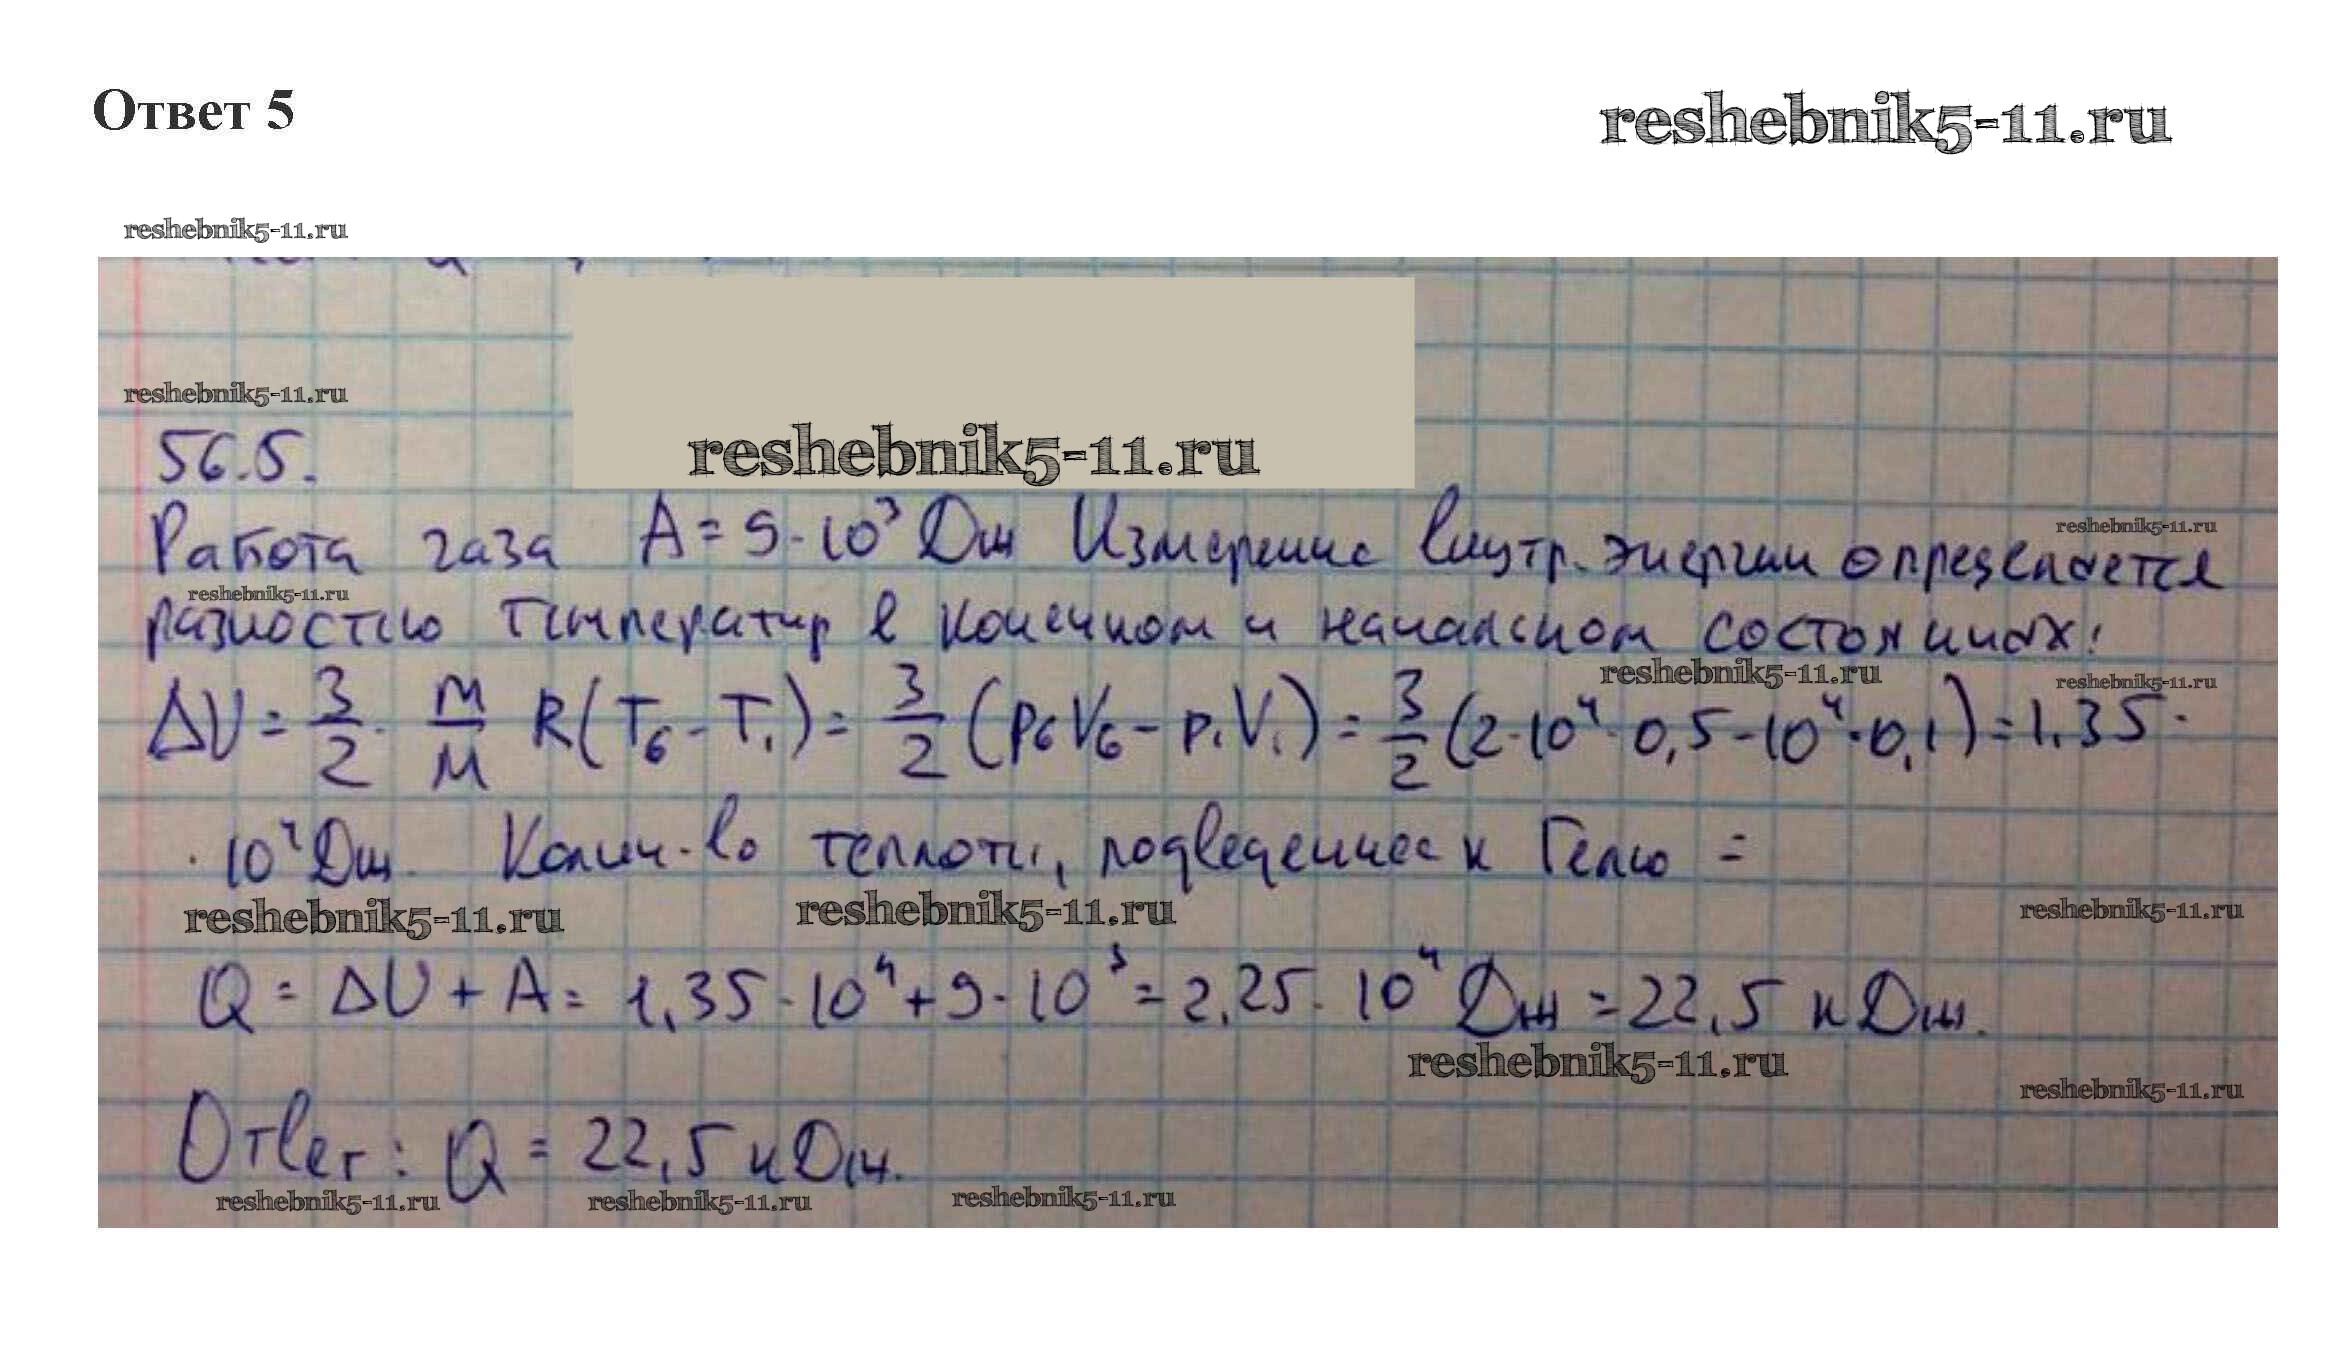 Ответ 5
reshebnik5-11.ru
reshebnik5-11.ru
reshebnik5-11.ru
56.5.
reshebnik5-11.ru
Работа газа A = 9·10³ Дж Измерение внутр. энергии определяется
reshebnik5-11.ru
reshebnik5-11.ru
разностью температур в конечном и начальном состояниях:
reshebnik5-11.ru
reshebnik5-11.ru
ΔU = 3/2 · m/M R(T₆ - T₁) = 3/2 (p₆V₆ - p₁V₁) = 3/2 (2·10⁴·0,5 - 10⁴·0,1) = 1,35 ·
· 10⁴ Дж. Колич-во теплоты, подведенное к Гелию =
reshebnik5-11.ru
reshebnik5-11.ru
reshebnik5-11.ru
Q = ΔU + A = 1,35·10⁴ + 9·10³ = 2,25·10⁴ Дж = 22,5 кДж.
reshebnik5-11.ru
reshebnik5-11.ru
Ответ: Q = 22,5 кДж.
reshebnik5-11.ru
reshebnik5-11.ru
reshebnik5-11.ru